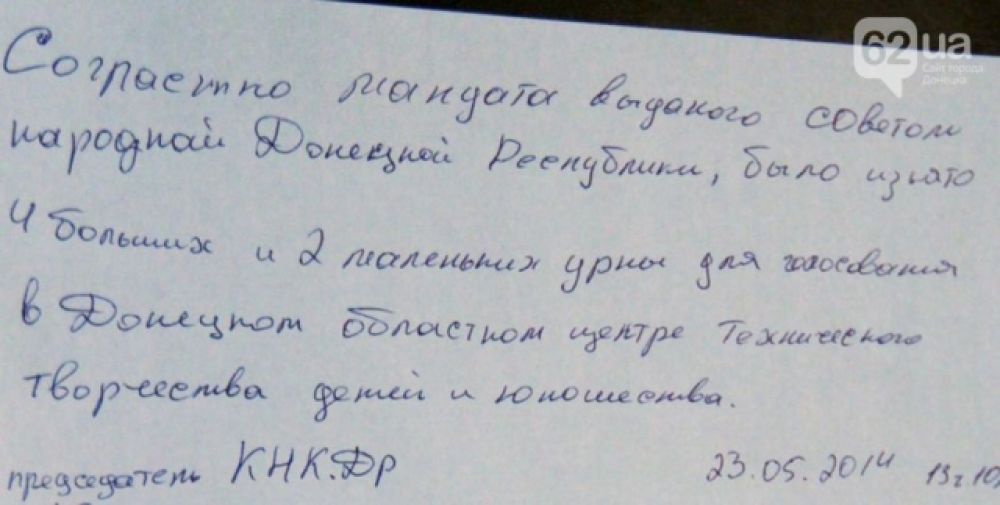 62.ua
Сайт города
Донецка
Согластно мандата выданого советом
народной Донецкой Республики, было изъято
4 больших и 2 маленьких урны для голосования
в Донецком областном центре Технического
творчества детей и юношества.
председатель КНК.ДР 23.05.2014 13ч.10